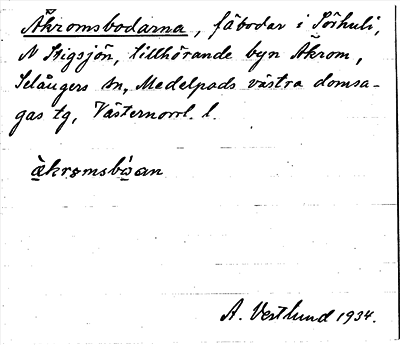 Åkromsbodarna, fäbodar i Sörhuli,
N Stigsjön, tillhörande byn Åkrom,
Selångers sn, Medelpads västra domsa-
gas tg, Västernorrl. l.
A. Vestlund 1934.